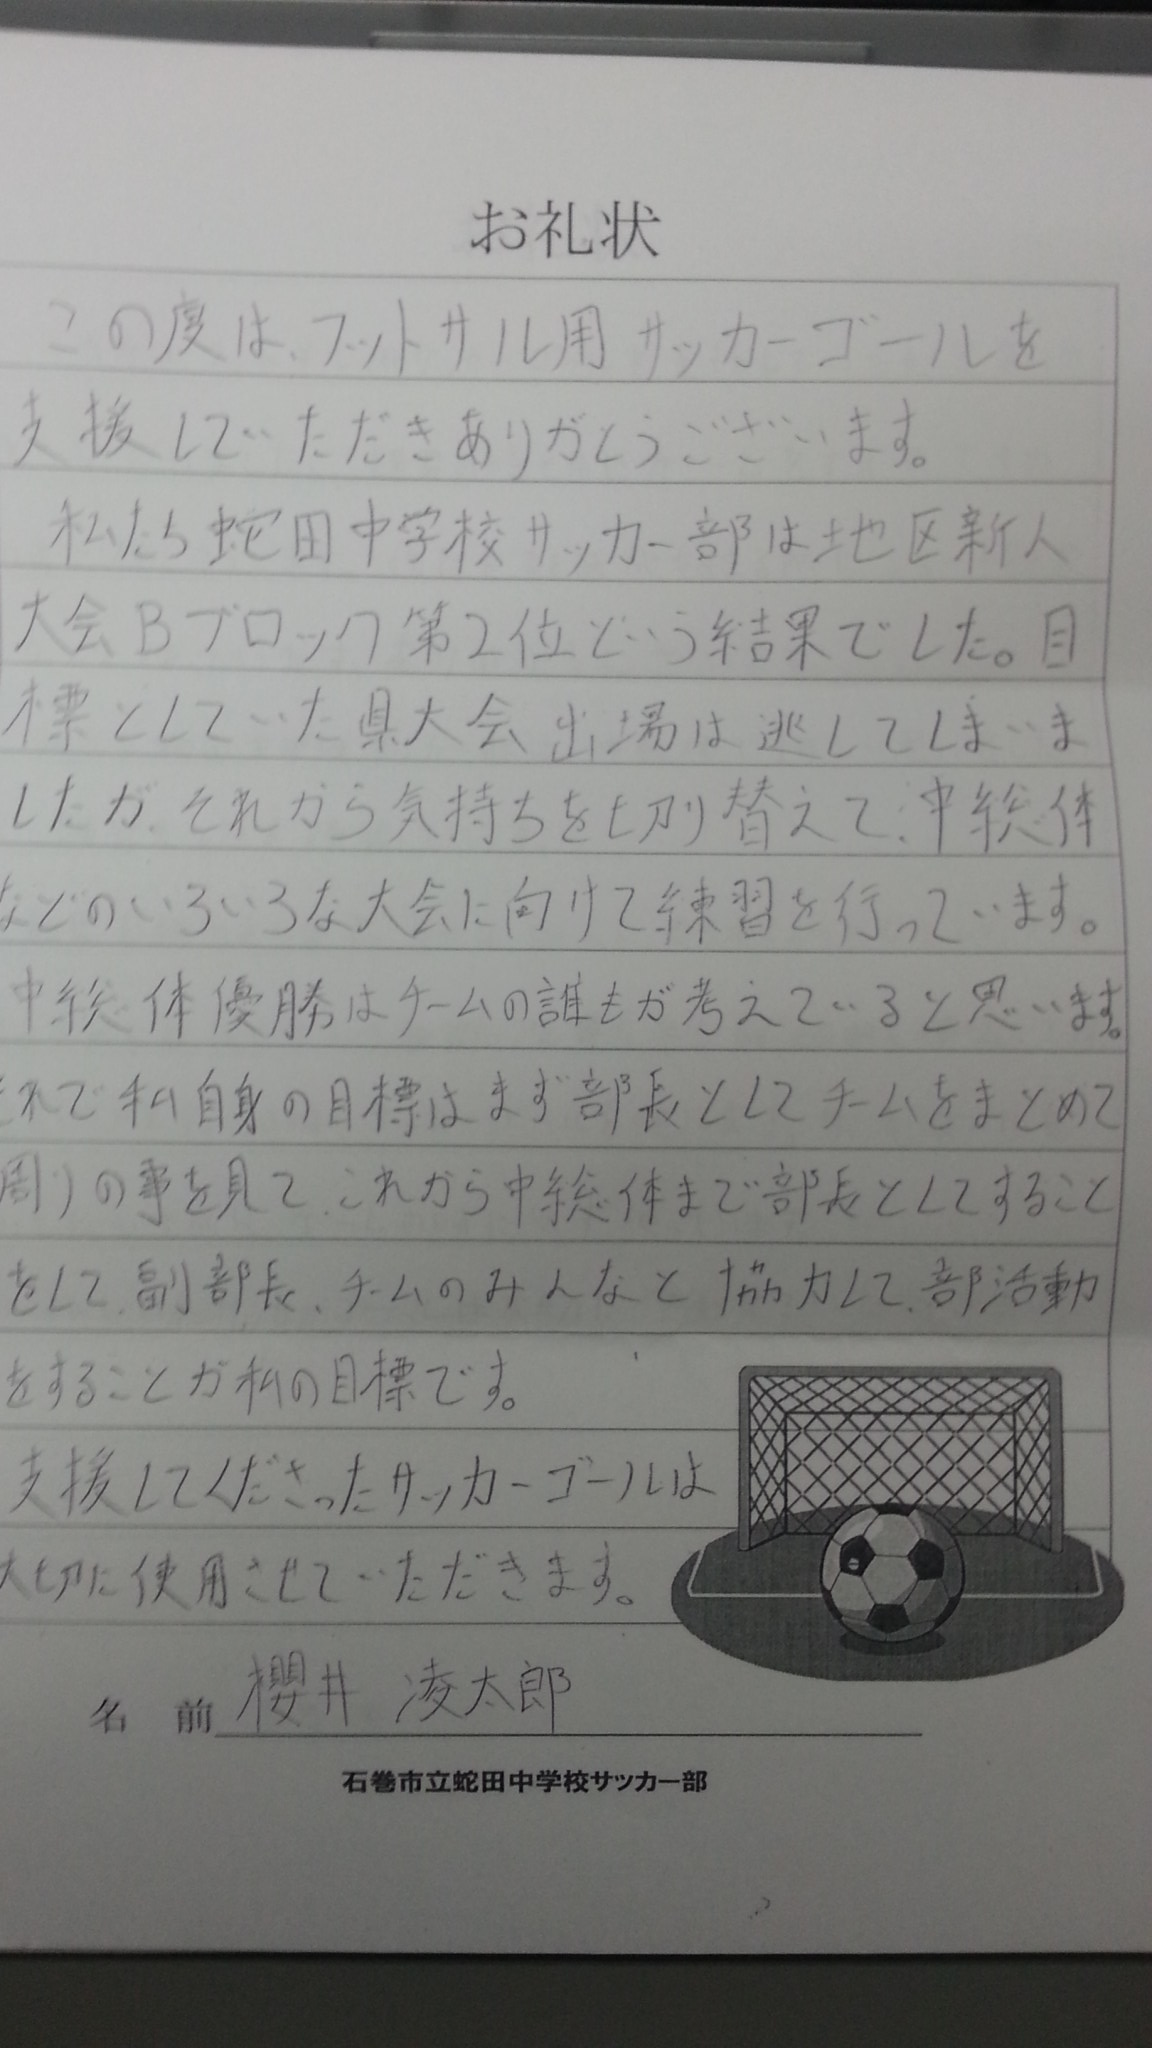 お礼状
この度は、フットサル用サッカーゴールを
支援していただきありがとうございます。
私たち蛇田中学校サッカー部は地区新人
大会Bブロック第2位という結果でした。目
標としていた県大会出場は逃してしまいま
したが、それから気持ちを切り替えて、中総体
などのいろいろな大会に向けて練習を行っています。
中総体優勝はチームの誰もが考えていると思います。
それで私自身の目標はまず部長としてチームをまとめて
周りの事を見て、これから中総体まで部長としてすること
をして、副部長、チームのみんなと協力して、部活動
をすることが私の目標です。
支援してくださったサッカーゴールは
大切に使用させていただきます。
名前 櫻井 凌太郎
石巻市立蛇田中学校サッカー部